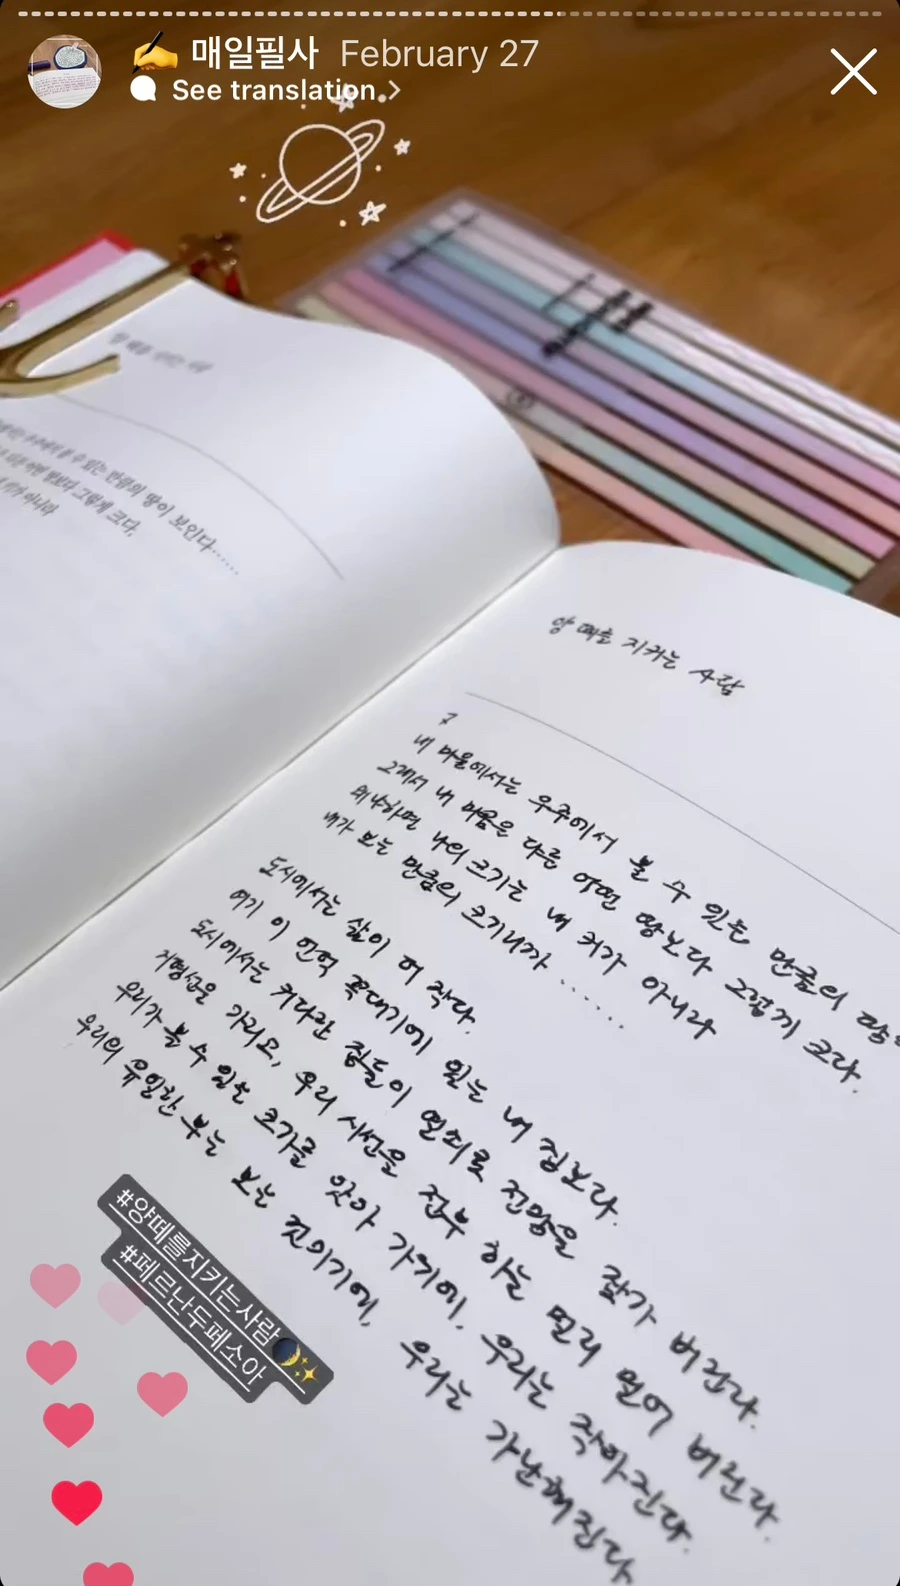 매일필사 February 27
See translation
만큼의 땅이 보인다......
그렇게 크다,
양 떼를 지키는 사람
7
내 마을에서는 우주에서 볼 수 있는 만큼의 땅
그래서 내 마을은 다른 어떤 땅보다 그렇게 크다.
왜냐하면 나의 크기는 내 키가 아니라
내가 보는 만큼의 크기니까 ......
도시에서는 삶이 더 작다.
여기 이 언덕 꼭대기에 있는 내 집보다.
도시에서는 커다란 집들이 열쇠로 전망을 잠가 버린다.
지평선을 가리고, 우리 시선을 전부 하늘 멀리 밀어 버린다.
우리가 볼 수 있는 크기를 앗아 가기에, 우리는 작아진다.
우리의 유일한 부는 보는 것이기에, 우리는 가난해진다
#양떼를지키는사람
#페르난두페소아